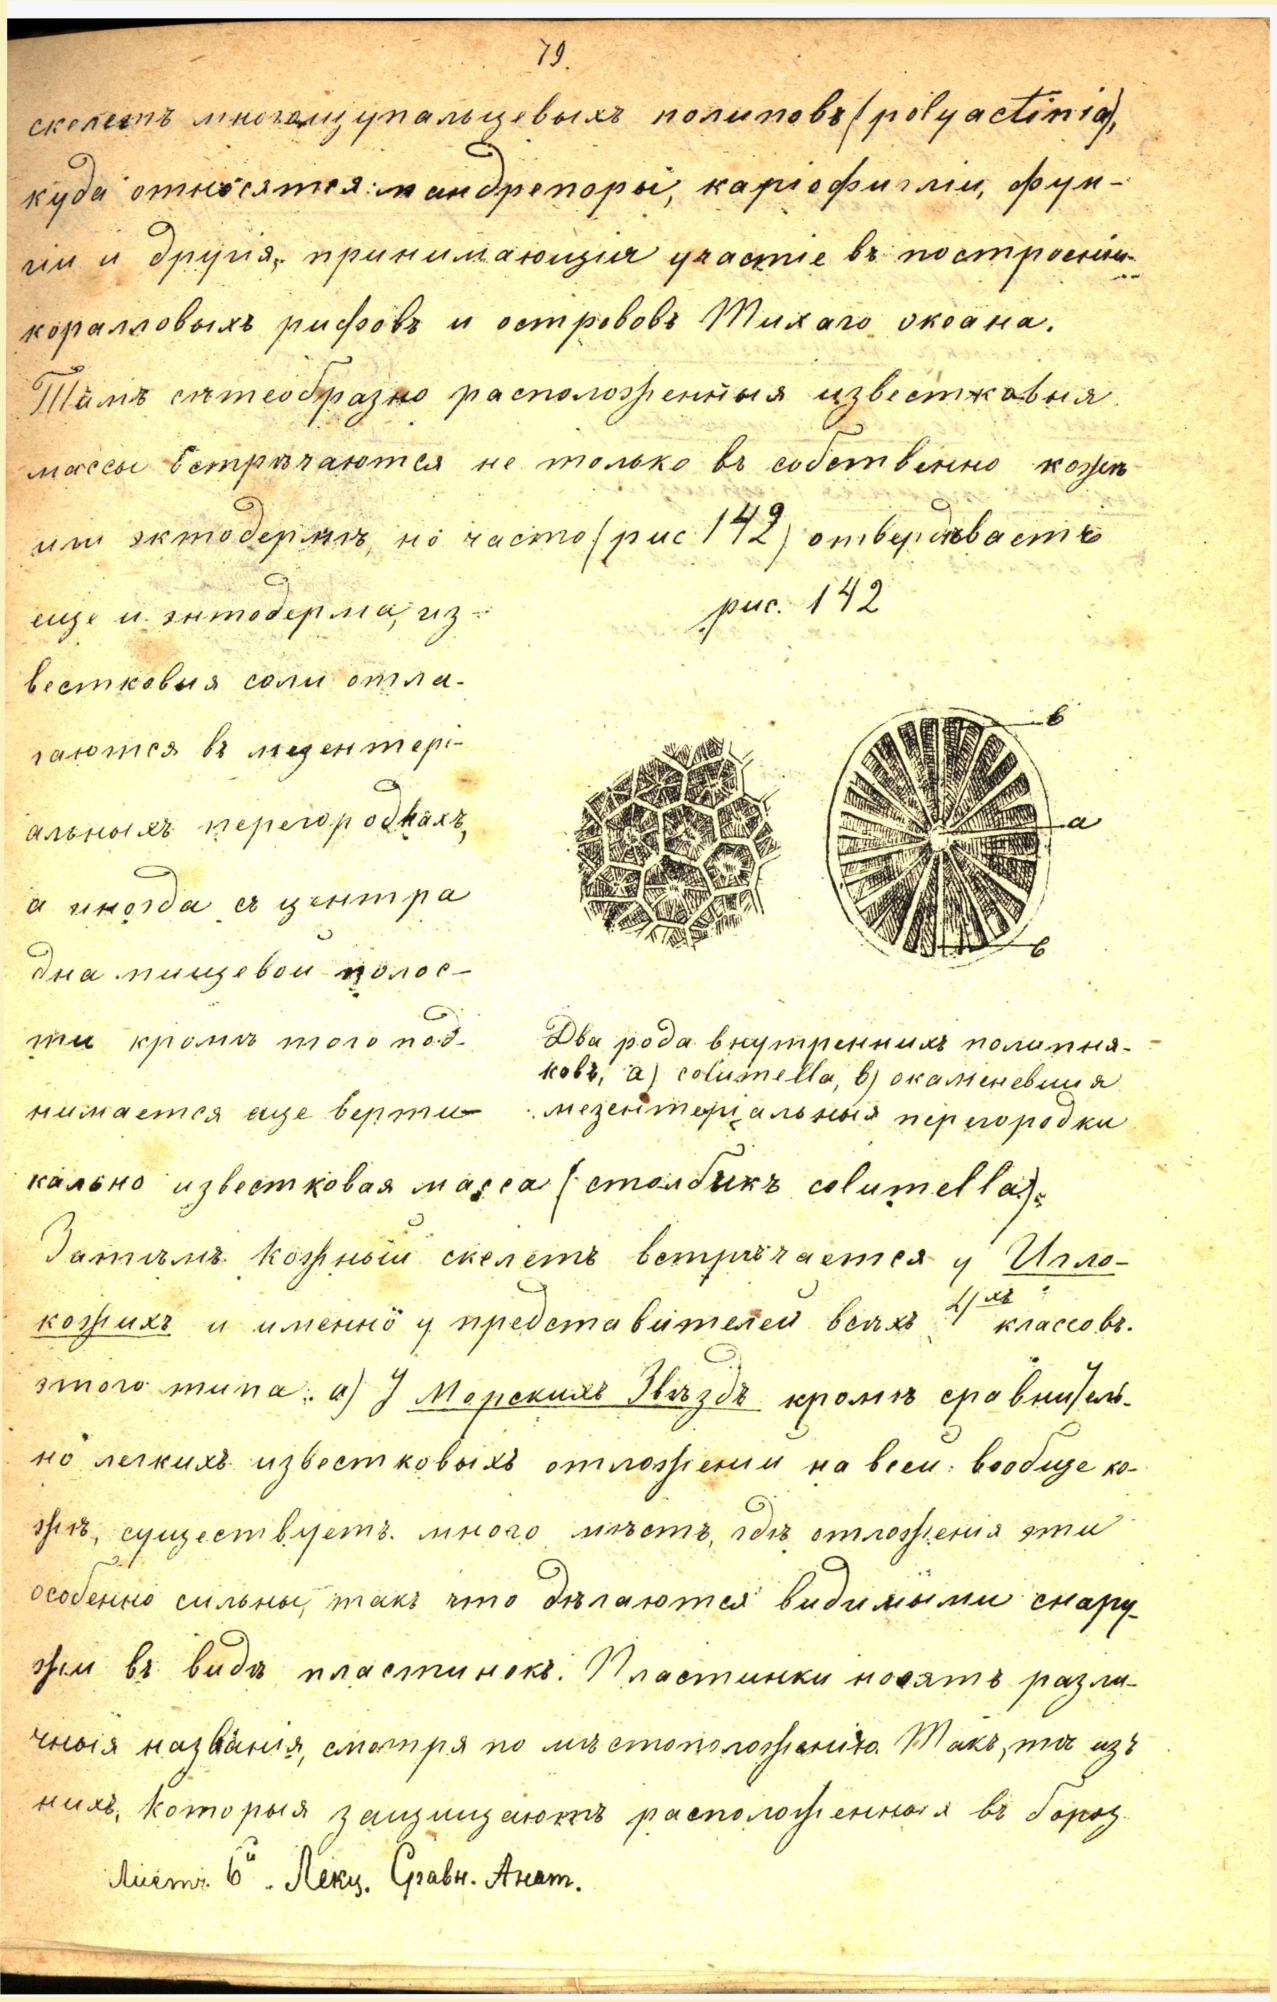 79.
скелетъ многощупальцевыхъ полиповъ (polyactinia),
куда относятся: мандрепоры, каріофиліи, фун-
гіи и другія, принимающія участіе въ построеніи
коралловыхъ рифовъ и острововъ Тихаго океана.
Тамъ сѣтеобразно расположенныя известковыя
массы встрѣчаются не только въ собственно кожѣ
или эктодермѣ, но часто (рис 142) отвердѣваетъ
еще и энтодерма, из-
вестковыя соли отла-
гаются въ мезентері-
альныхъ перегородкахъ,
а иногда съ центра
дна пищевой полос-
ти кромѣ того под-
нимается еще верти-
рис. 142
в
а
в
Два рода внутреннихъ полипня-
ковъ, а) columella, в) окаменевшия
мезентеріальныя перегородки
кально известковая масса (столбикъ columella).
Затѣмъ кожный скелетъ встрѣчается у Игло-
кожихъ и именно у представителей всѣхъ 4хъ классовъ.
этого типа. а) У Морскихъ Звѣздъ кромѣ сравнитель-
но легкихъ известковыхъ отложений на всей вообще ко-
жѣ, существуетъ много мѣстъ, гдѣ отложения эти
особенно сильны, такъ что дѣлаются видимыми снару-
жи въ видѣ пластинокъ. Пластинки носятъ разли-
чныя названія, смотря по мѣстоположенію. Такъ, тѣ изъ
нихъ, которыя защищаютъ расположенныя въ бороз
Листъ 6й. Лекц. Сравн. Анат.